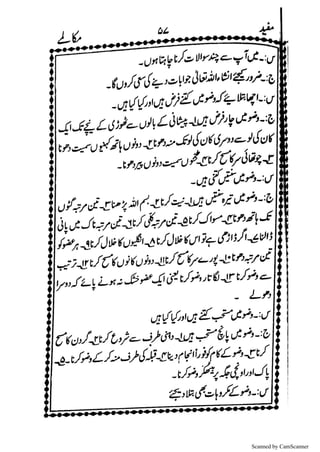 مفید ۵۷ مکالمے
س:۔ میں آپ سے چند سوالات کرنا چاہتا ہوں۔
ج:۔ ضرور کیجئے انشاء اللہ تعالیٰ جوابات دینے کی سعی کروں گا۔
س:۔ اچھا بتلائیے کہ وضو میں کتنے فرض ہیں اور کیا کیا ہیں۔
ج:۔ وضو میں چار فرض ہیں۱۔ پیشانی کے بالوں سے ٹھوڑی کے نیچے تک ایک
کان کی لو سے دوسری کان کی لو تک منہ دھونا۲۔ دونوں ہاتھ کہنیوں سمیت دھونا
۳۔ چوتھائی سر کا مسح کرنا۴۔ ٹخنوں سمیت دونوں پیر دھونا۔
س:۔ وضو میں سنتیں کتنی ہیں۔
ج:۔ وضو میں تیرہ سنتیں ہیں۱۔ نیت کرنا۲۔ بسم اللہ پڑھنا۳۔ تین مرتبہ گٹوں
تک ہاتھ دھونا۴۔ مسواک کرنا۵۔ تین مرتبہ کلی کرنا۶۔ تین مرتبہ ناک میں پانی
ڈالنا۷۔ اگر ڈاڑھی ہے تو اس کا خلال کرنا۸۔ انگلیوں کا خلال کرنا۹۔ ہر عضو کو
تین مرتبہ دھونا۱۰۔ پورے سر کا مسح کرنا۱۱۔ دونوں کانوں کا مسح کرنا۱۲۔ ترتیب
سے وضو کرنا۱۳۔ لگا تار وضو کرنا یعنی ایک عضو خشک نہ ہونے پائے کہ دوسرا
دھولے۔
س:۔ وضو میں مستحب کتنے ہیں اور کیا کیا ہیں
ج:۔ وضو میں پانچ مستحب ہیں۱۔ دہنی طرف سے شروع کرنا۲۔ گردن کا مسح
کرنا۳۔ وضو کے کام کو خود انجام دینا۴۔ قبلہ کی طرف منہ کر کے وضو کرنا۔۵۔
پاک اور اونچی جگہ پر بیٹھ کر وضو کرنا۔
س:۔ وضو کے مکروہات بھی بتلا دیجئے
Scanned by CamScanner